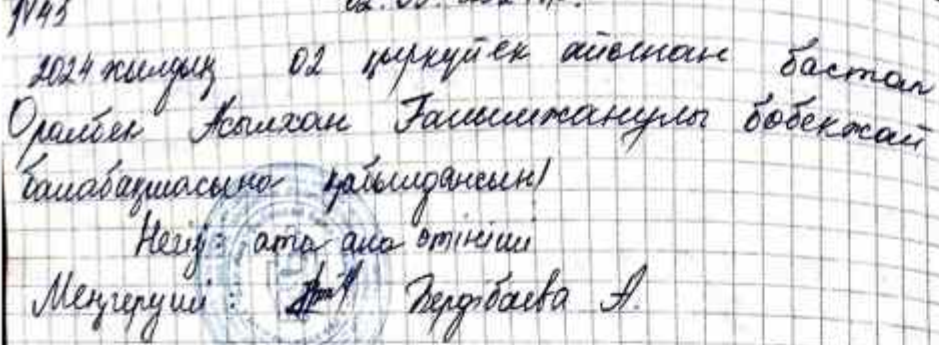 №45 02.09.2024ж.
2024 жылдың 02 қыркүйек айынан бастап
Оралбек Асылхан Ғалымжанұлы бөбекжай
балабақшасына қабылдансын!
Негіз: ата ана өтініші
Меңгеруші: Бердібаева А.